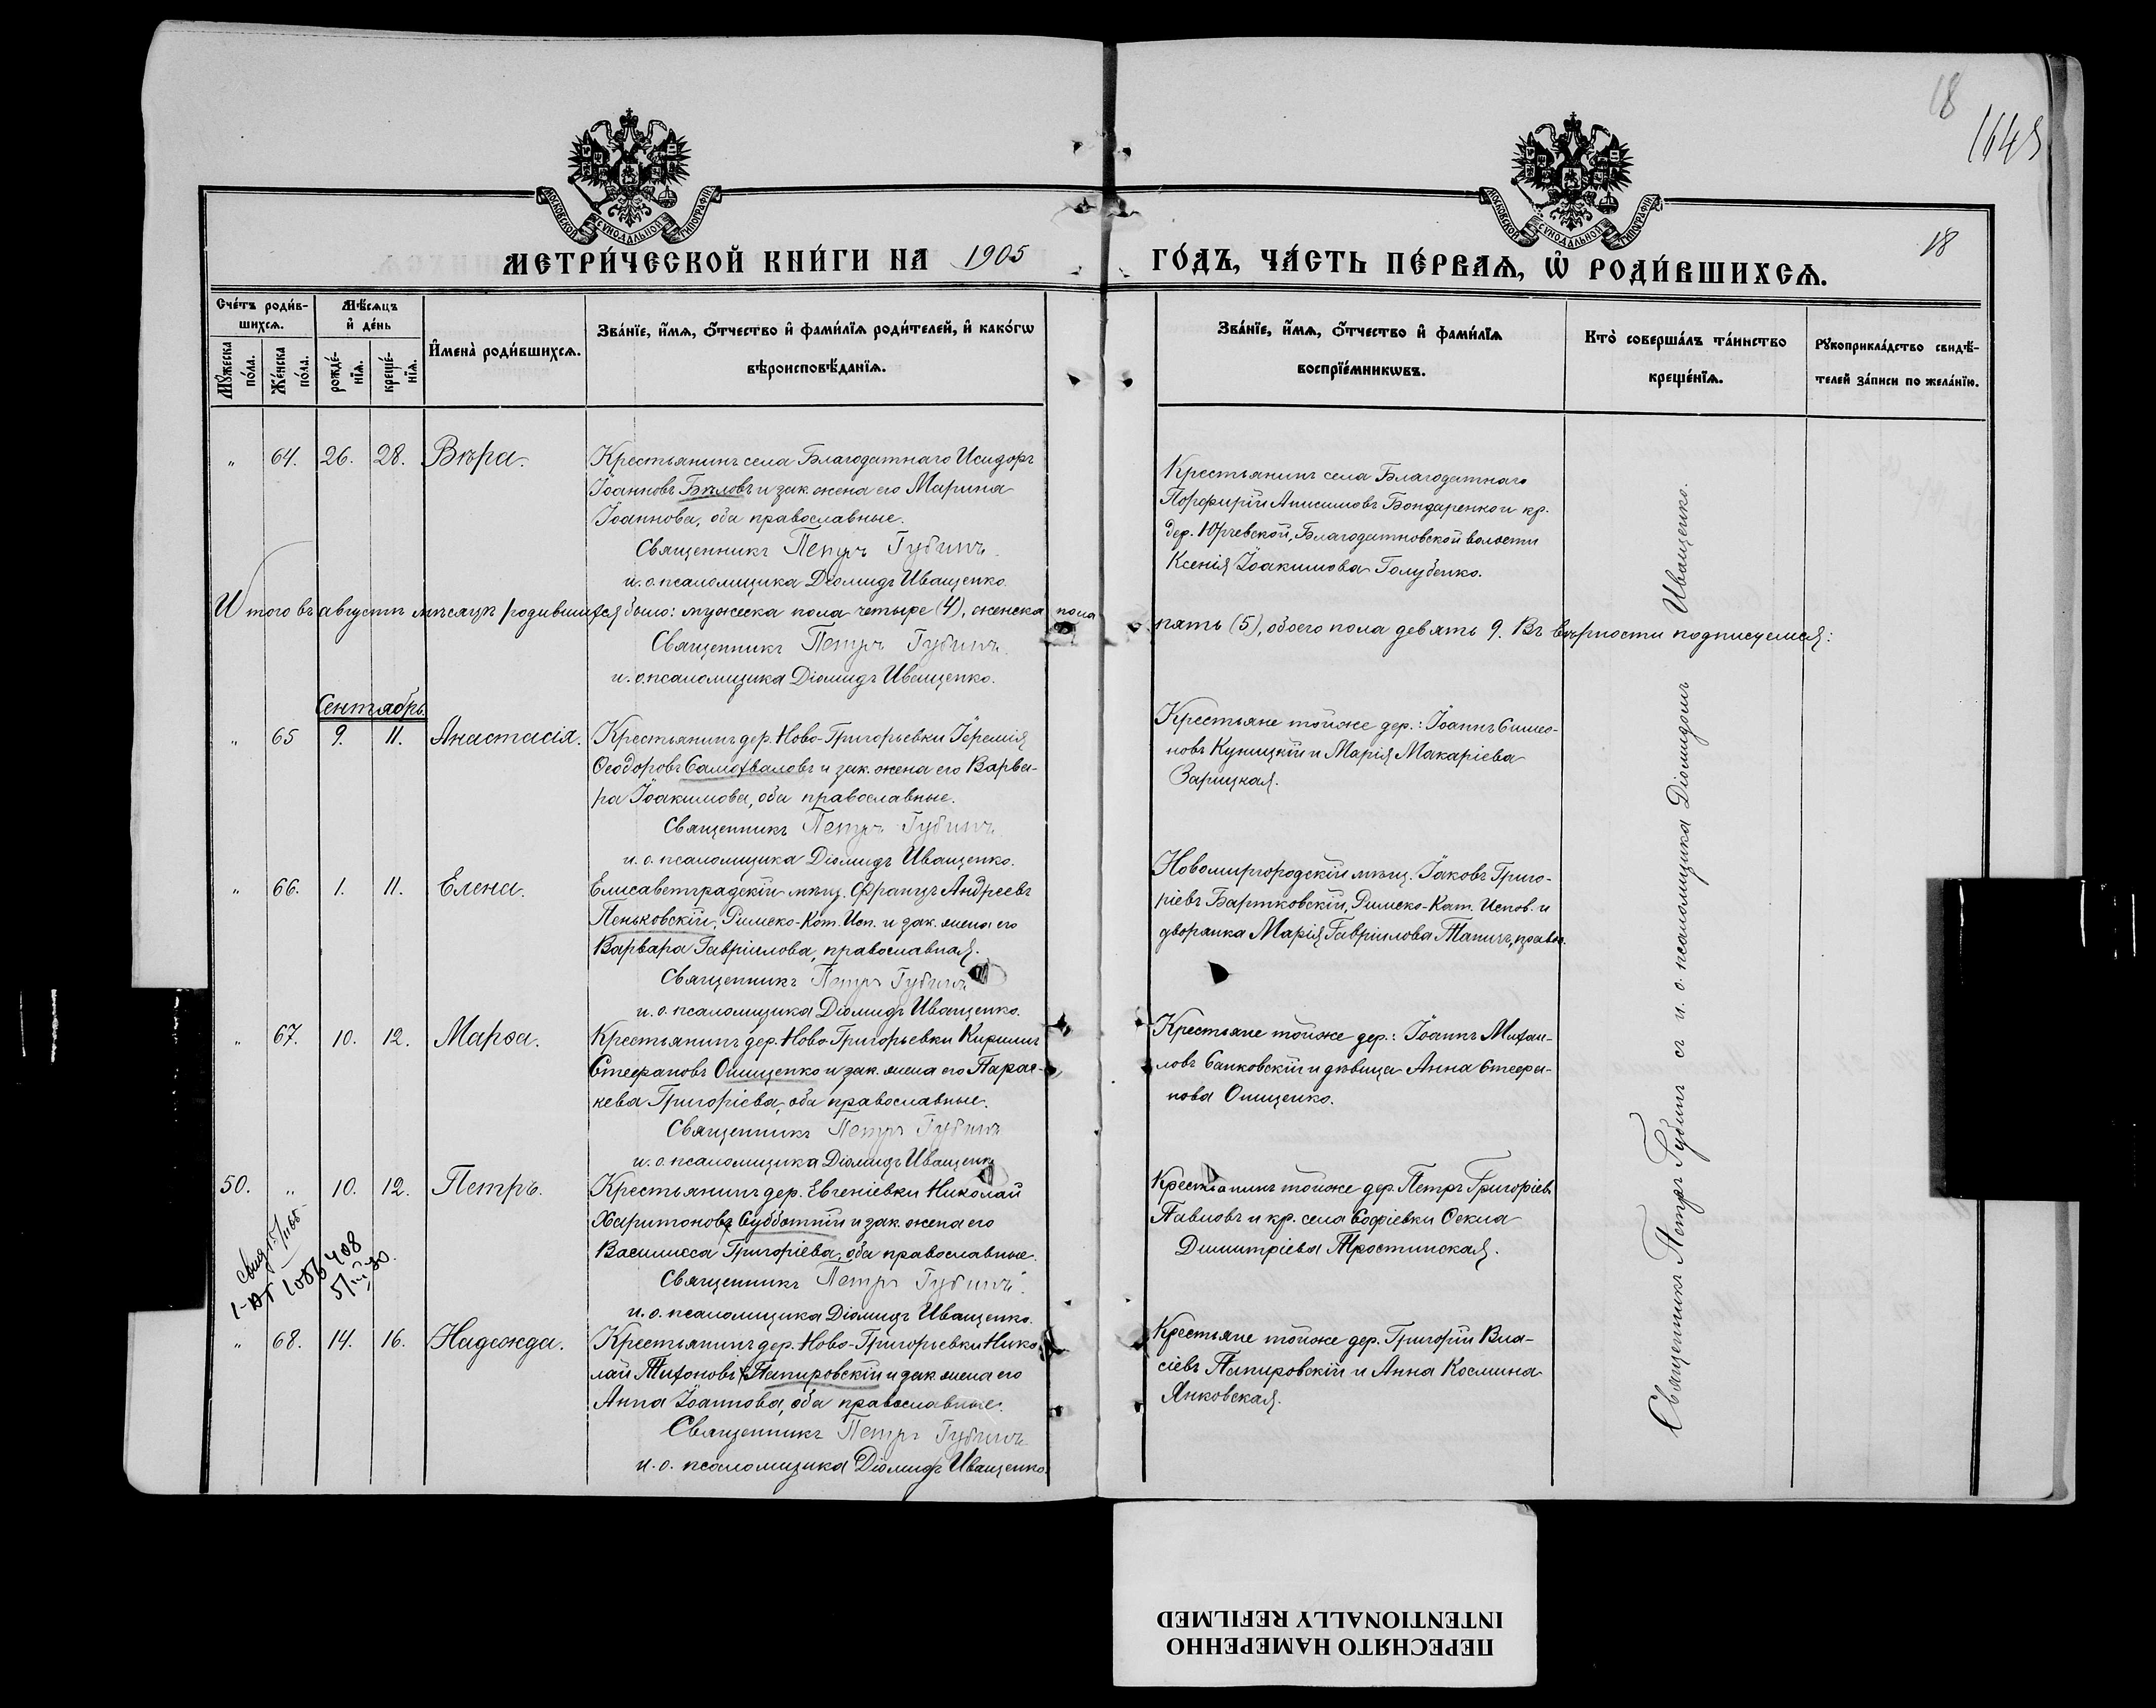 18
1648
18
МОСКОВСКОЙ СѴНОДАЛЬНОЙ ТИПОГРАФІИ
МОСКОВСКОЙ СѴНОДАЛЬНОЙ ТИПОГРАФІИ
МЕТРИ́ЧЕСКОЙ КНИ́ГИ НА 1905 ГО́ДЪ, ЧА́СТЬ ПЕ́РВАѦ, Ѡ҆ РОДИ́ВШИХСѦ.
Сче́тъ роди́в-
шихсѧ.
Мѣ́сѧцъ
и҆ де́нь
Мꙋ́жеска
по́ла.
Же́нска
по́ла.
рожде́-
нїѧ.
креще́-
нїѧ.
И҆мена̀ роди́вшихсѧ.
Зва́нїе, и҆́мѧ, ѻ҆́тчество и҆ фами́лїѧ роди́телей, и҆ како́гѡ
вѣроисповѣ́данїѧ.
Зва́нїе, и҆́мѧ, ѻ҆́тчество и҆ фами́лїѧ
воспрїе́мникѡвъ.
Кто̀ соверша́лъ та́инство
креще́нїѧ.
Рꙋкоприкла́дство свидѣ́-
телей за́писи по жела́нїю.
„ 64. 26. 28. Вѣра.
Крестьянинъ села Благодатнаго Исидоръ
Іоанновъ Бѣловъ и зак. жена его Марина
Іоаннова, оба православные.
Священникъ Петръ Губинъ.
и. о. псаломщика Діомидъ Иващенко.
Крестьянинъ села Благодатнаго
Порфирій Анисимовъ Бондаренко и кр.
дер. Юрчевской, Благодатновской волости
Ксенія Іоакимова Голубенко.
Итого въ августѣ мѣсяцѣ родившихся было: мужеска пола четыре (4), женска пола пять (5), обоего пола девять 9. Въ вѣрности подписуемся:
Священникъ Петръ Губинъ.
и. о. псаломщика Діомидъ Иващенко.
Сентябрь.
„ 65 9. 11. Анастасія.
Крестьянинъ дер. Ново-Григорьевки Іеремія
Ѳеодоровъ Самохваловъ и зак. жена его Варва-
ра Іоакимова, оба православные.
Священникъ Петръ Губинъ
и. о. псаломщика Діомидъ Иващенко.
Крестьяне тойже дер.: Іоаннъ Симео-
новъ Куницкій и Марія Макаріева
Зарицкая.
„ 66. 1. 11. Елена.
Елисаветградскій мѣщ. Францъ Андреевъ
Пеньковскій, Римско-Кат. Исп. и зак. жена его
Варвара Гавріилова, православная.
Священникъ Петръ Губинъ
и. о. псаломщика Діомидъ Иващенко.
Новомиргородскій мѣщ. Іаковъ Григо-
ріевъ Бартковскій, Римско-Кат. Испов. и
дворянка Марія Гавріилова правос.
„ 67. 10. 12. Марѳа.
Крестьянинъ дер. Ново-Григорьевки Кириллъ
Стефановъ Онищенко и зак. жена его Парас-
кева Григоріева, оба православные.
Священникъ Петръ Губинъ
и. о. псаломщика Діомидъ Иващенко
Крестьяне тойже дер.: Іоаннъ Михаи-
ловъ Санковскій и дѣвица Анна Стефа-
нова Онищенко.
50. „ 10. 12. Петръ.
Крестьянинъ дер. Евгеніевки Николай
Харитоновъ Субботній и зак. жена его
Василисса Григоріева, оба православные.
Священникъ Петръ Губинъ.
и. о. псаломщика Діомидъ Иващенко.
Крестьянинъ тойже дер. Петръ Григоріевъ
Павловъ и кр. села Софіевки Ѳекла
Димитріева Тростинская.
„ 68. 14. 16. Надежда.
Крестьянинъ дер. Ново-Григорьевки Нико-
лай Тихоновъ Папировскій и зак. жена его
Анна Іоаннова, оба православные.
Священникъ Петръ Губинъ
и. о. псаломщика Діомидъ Иващенко.
Крестьяне тойже дер. Григорій Вла-
сіевъ Папировскій и Анна Космина
Янковская.
Священникъ Петръ Губинъ съ и. о. псаломщика Діомидомъ Иващенко.
ПЕРЕСНЯТО НАМЕРЕННО
INTENTIONALLY REFILMED